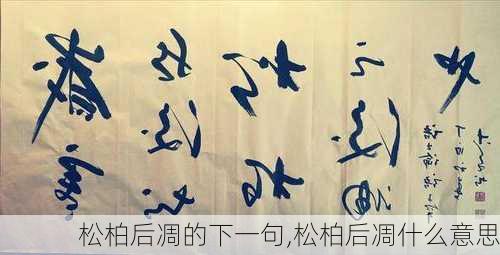 歲寒
然後知
松柏
之後凋
也
松柏后凋的下一句,松柏后凋什么意思